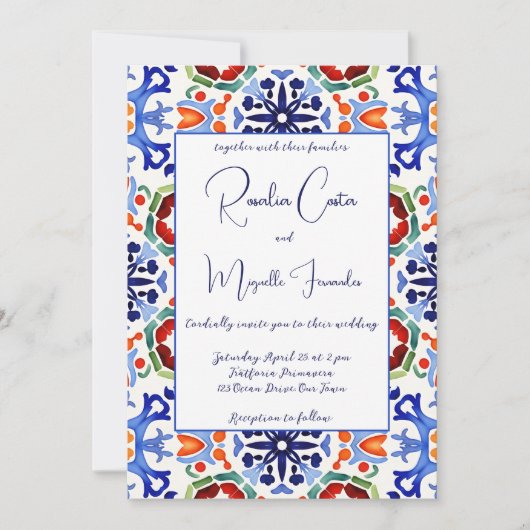 together with their families
Rosalia Costa
and
Miguelle Fernandes
Cordially invite you to their wedding
Saturday April 25 at 2 pm
Trattoria Primavera
123 Ocean Drive, Our Town
Reception to follow